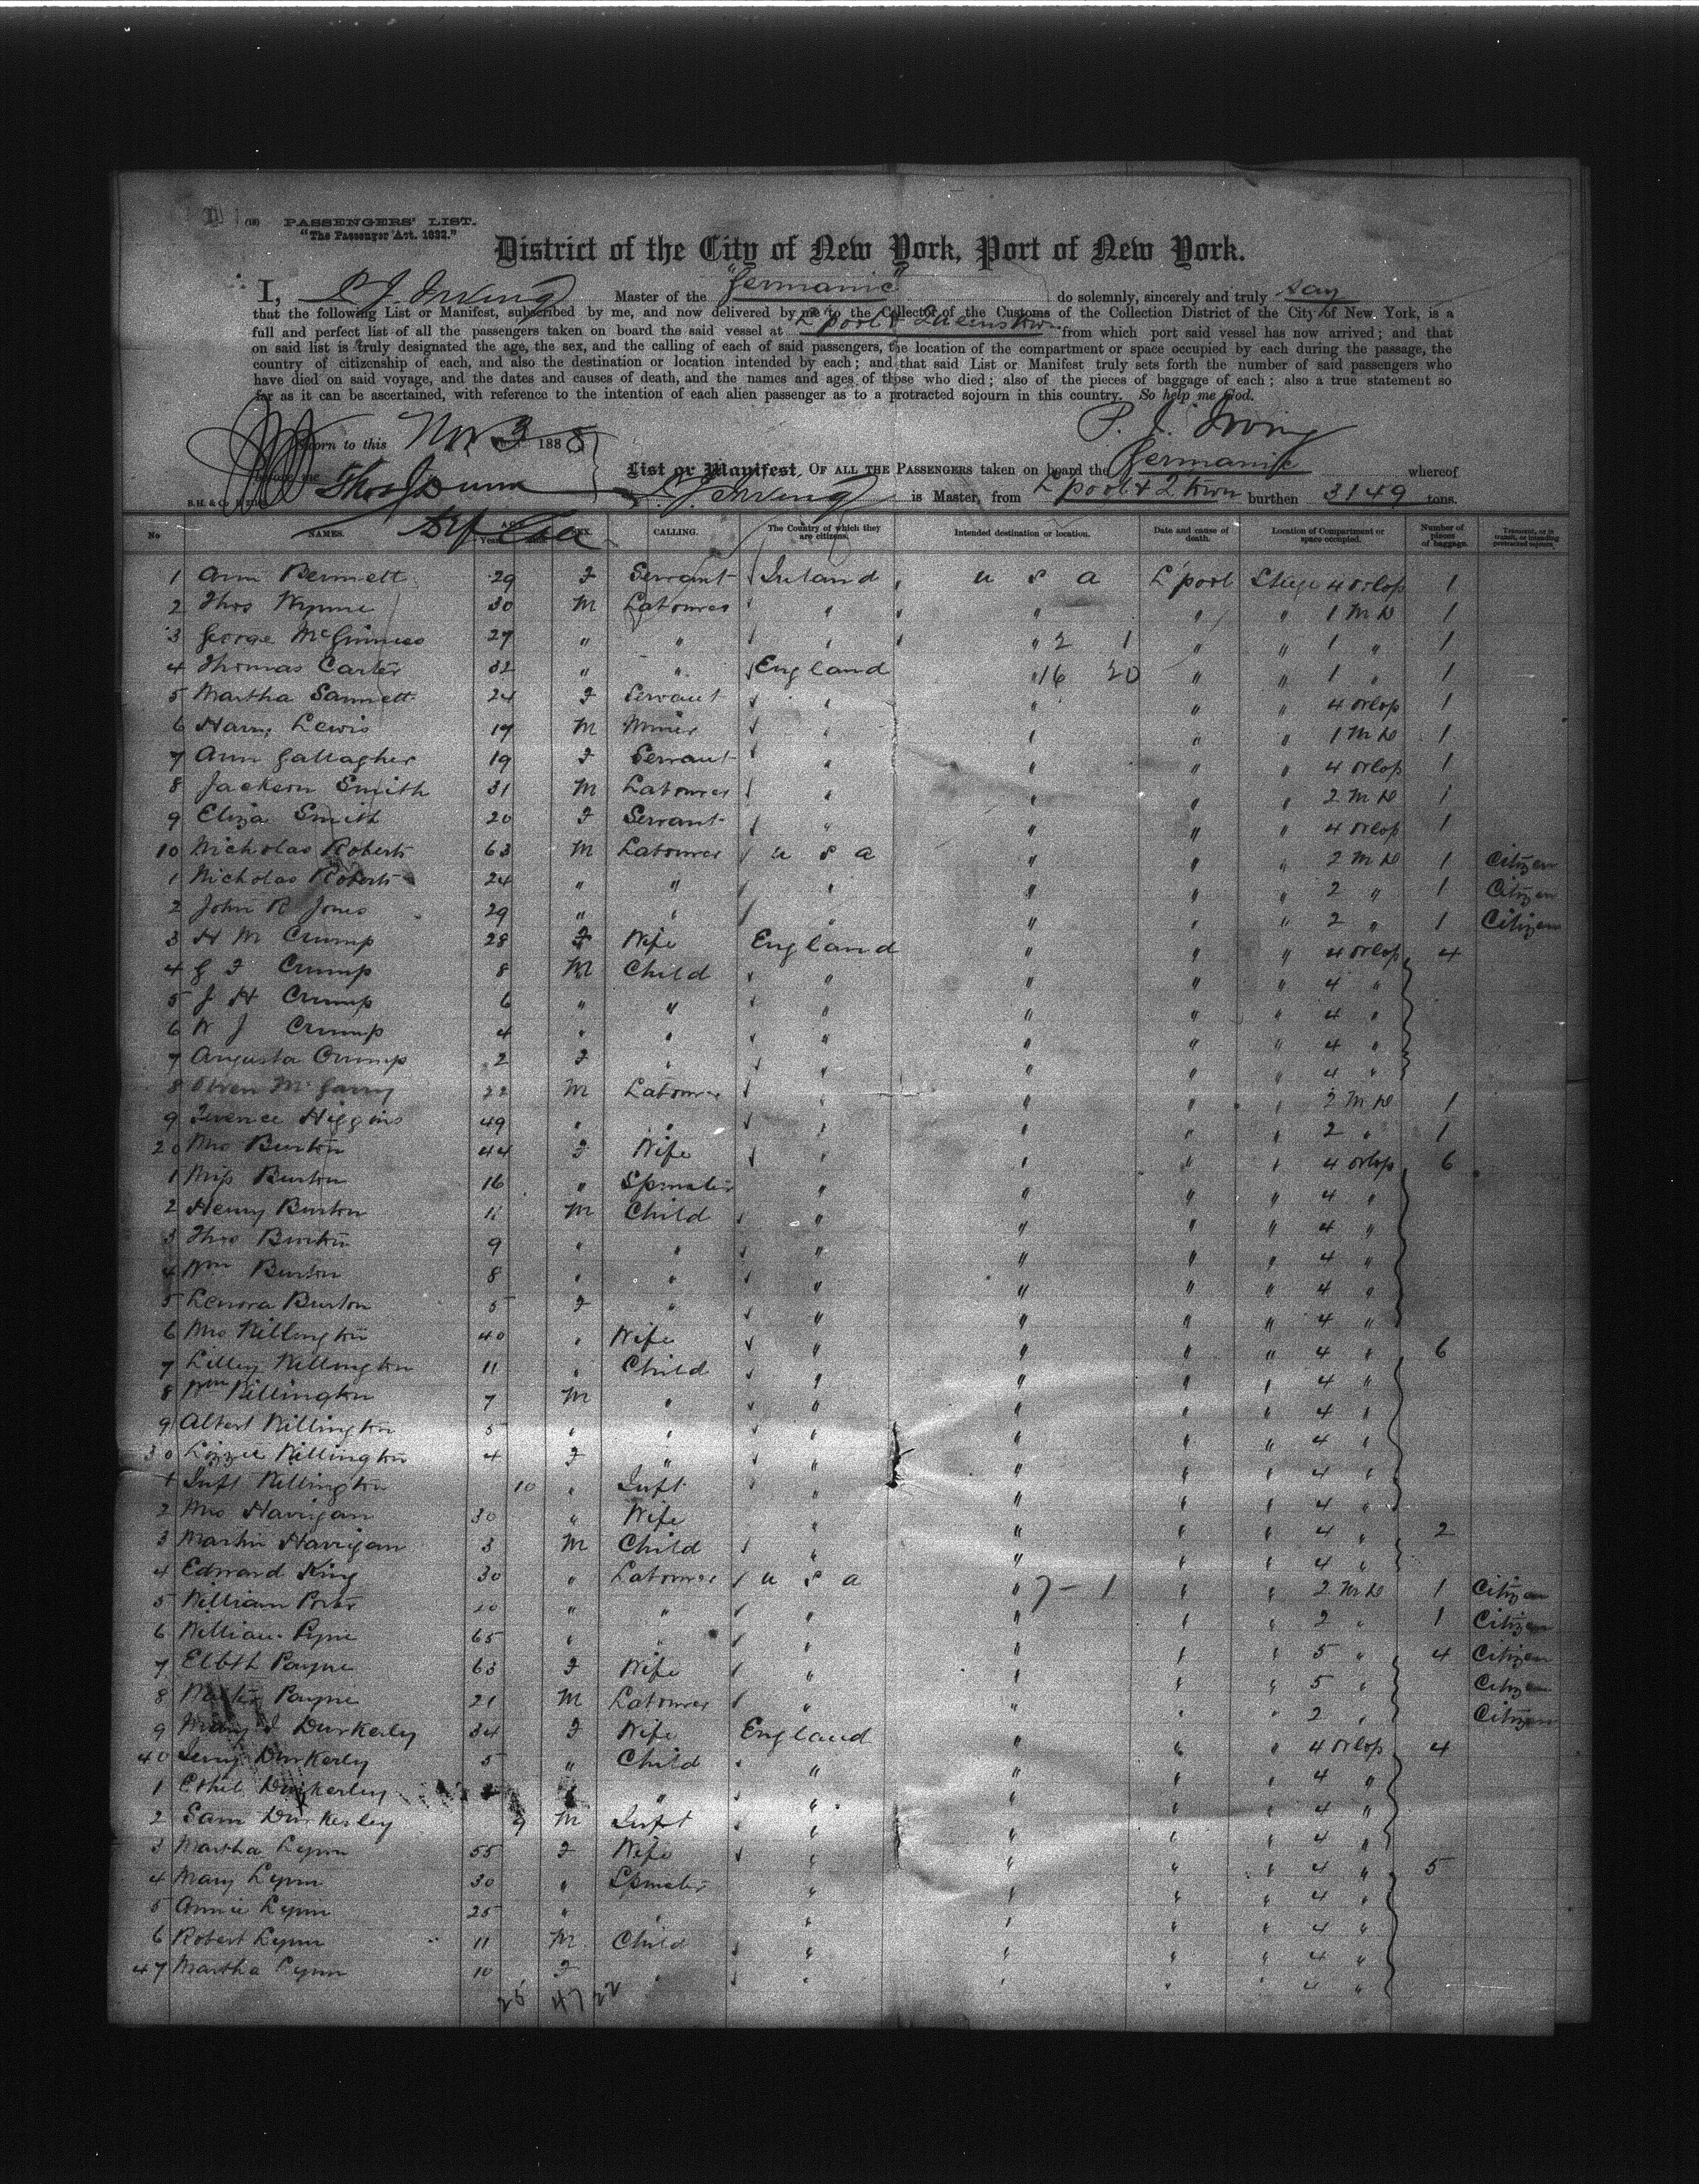 PASSENGERS' LIST.
"The Passenger Act. 1882."
District of the City of New York, Port of New York.
I, P. J. Irving Master of the "Germanic" do solemnly, sincerely and truly say
that the following List or Manifest, subscribed by me, and now delivered by me to the Collector of the Customs of the Collection District of the City of New York, is a
full and perfect list of all the passengers taken on board the said vessel at L'pool & Queenstown from which port said vessel has now arrived; and that
on said list is truly designated the age, the sex, and the calling of each of said passengers, the location of the compartment or space occupied by each during the passage, the
country of citizenship of each, and also the destination or location intended by each; and that said List or Manifest truly sets forth the number of said passengers who
have died on said voyage, and the dates and causes of death, and the names and ages of those who died; also of the pieces of baggage of each; also a true statement so
far as it can be ascertained, with reference to the intention of each alien passenger as to a protracted sojourn in this country. So help me God.
P. J. Irving
Sworn to this Nov 3 1888
before me Thos J Dunn
List or Manifest, OF ALL THE PASSENGERS taken on board the Germanic whereof
P. J. Irving is Master, from L'pool & Q town burthen 3149 tons.
No NAMES. AGE Years SEX. CALLING. The Country of which they are citizens. Intended destination or location. Date and cause of death. Location of Compartment or space occupied. Number of pieces of baggage. Transient, or in transit, or intending protracted sojourn.
1 Ann Bennett 29 F Servant Ireland U S A L'pool Stege 4 orlop 1
2 Thos Wynne 30 M Labourer " " " " 1 M D 1
3 George McGinness 27 " " " " 2 1 " " 1 " 1
4 Thomas Carter 32 " " England " 16 20 " " 1 " 1
5 Martha Sannett 24 F Servant " " " " 4 orlop 1
6 Harry Lewis 19 M Miner " " " " 1 M D 1
7 Ann Gallagher 19 F Servant " " " " 4 orlop 1
8 Jackson Smith 31 M Labourer " " " " 2 M D 1
9 Eliza Smith 20 F Servant " " " " 4 orlop 1
10 Nicholas Roberts 63 M Labourer U S A " " " 2 M D 1 Citizen
1 Nicholas Roberts 24 " " " " " " 2 " 1 Citizen
2 John R Jones 29 " " " " " " 2 " 1 Citizen
3 H M Crump 28 F Wife England " " " 4 orlop 4
4 G F Crump 8 M Child " " " " 4 "
5 J H Crump 6 " " " " " " 4 "
6 W J Crump 4 " " " " " " 4 "
7 Augusta Crump 2 F " " " " " 4 "
8 Owen McGarry 22 M Labourer " " " " 2 M D 1
9 Terence Higgins 49 " " " " " " 2 " 1
20 Mrs Burton 44 F Wife " " " " 4 orlop 6
1 Miss Burton 16 " Spinster " " " " 4 "
2 Henry Burton 11 M Child " " " " 4 "
3 Thos Burton 9 " " " " " " 4 "
4 Wm Burton 8 " " " " " " 4 "
5 Lenora Burton 5 F " " " " " 4 "
6 Mrs Willington 40 " Wife " " " " 4 " 6
7 Lilley Willington 11 " Child " " " " 4 "
8 Wm Billington 7 M " " " " " 4 "
9 Albert Willington 5 " " " " " " 4 "
30 Lizzie Willington 4 F " " " " " 4 "
1 Inft Willington 10 " Inft " " " " 4 "
2 Mrs Harrigan 30 " Wife " " " " 4 " 2
3 Martin Harrigan 3 M Child " " " " 4 "
4 Edward King 30 " Labourer U S A " 7 - 1 " " 2 M D 1 Citizen
5 William Porter 20 " " " " " " 2 " 1 Citizen
6 William Pyne 65 " " " " " " 5 " 4 Citizen
7 Elbth Payne 63 F Wife " " " " 5 " Citizen
8 Payne 21 M Labourer " " " " 2 " Citizen
9 Mary J Durkerly 34 F Wife England " " " 4 orlop 4
40 Jenny Durkerly 5 " Child " " " " 4 "
1 Ethel Durkerley " " " " " 4 "
2 Sam Durkerley 9 M Inft " " " " 4 "
3 Martha Lynn 55 F Wife " " " " 4 " 5
4 Mary Lynn 30 " Spinster " " " " 4 "
5 Annie Lynn 25 " " " " " " 4 "
6 Robert Lynn 11 M Child " " " " 4 "
47 Martha Lynn 10 F " " " " " 4 "
25 47 22